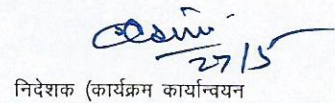 27/5
निदेशक (कार्यक्रम कार्यान्वयन